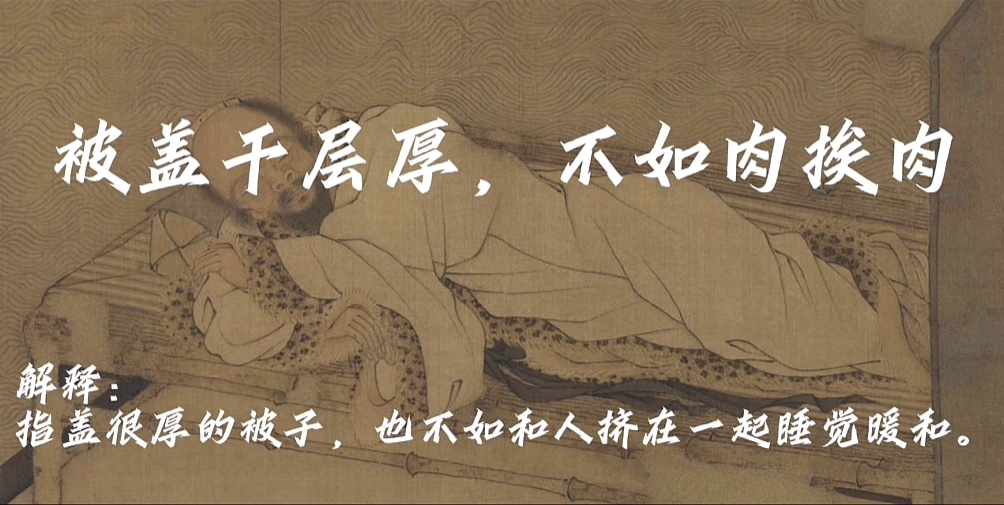 被盖千层厚，不如肉挨肉
解释：
指盖很厚的被子，也不如和人挤在一起睡觉暖和。